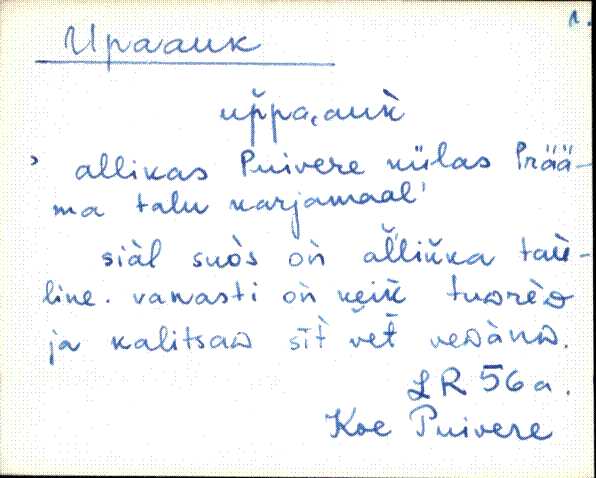 1.
Upaauk
up̆pa,auk̀
' allikas Puivere külas Prää-
ma talu karjamaal'
siàl suòs oǹ al̆lik̆ka taù-
line. vanasti oǹ keik̆ tuorèD
ja kalitsaD sīt̀ vet̆ veDànD.
LR 56 a.
Koe Puivere